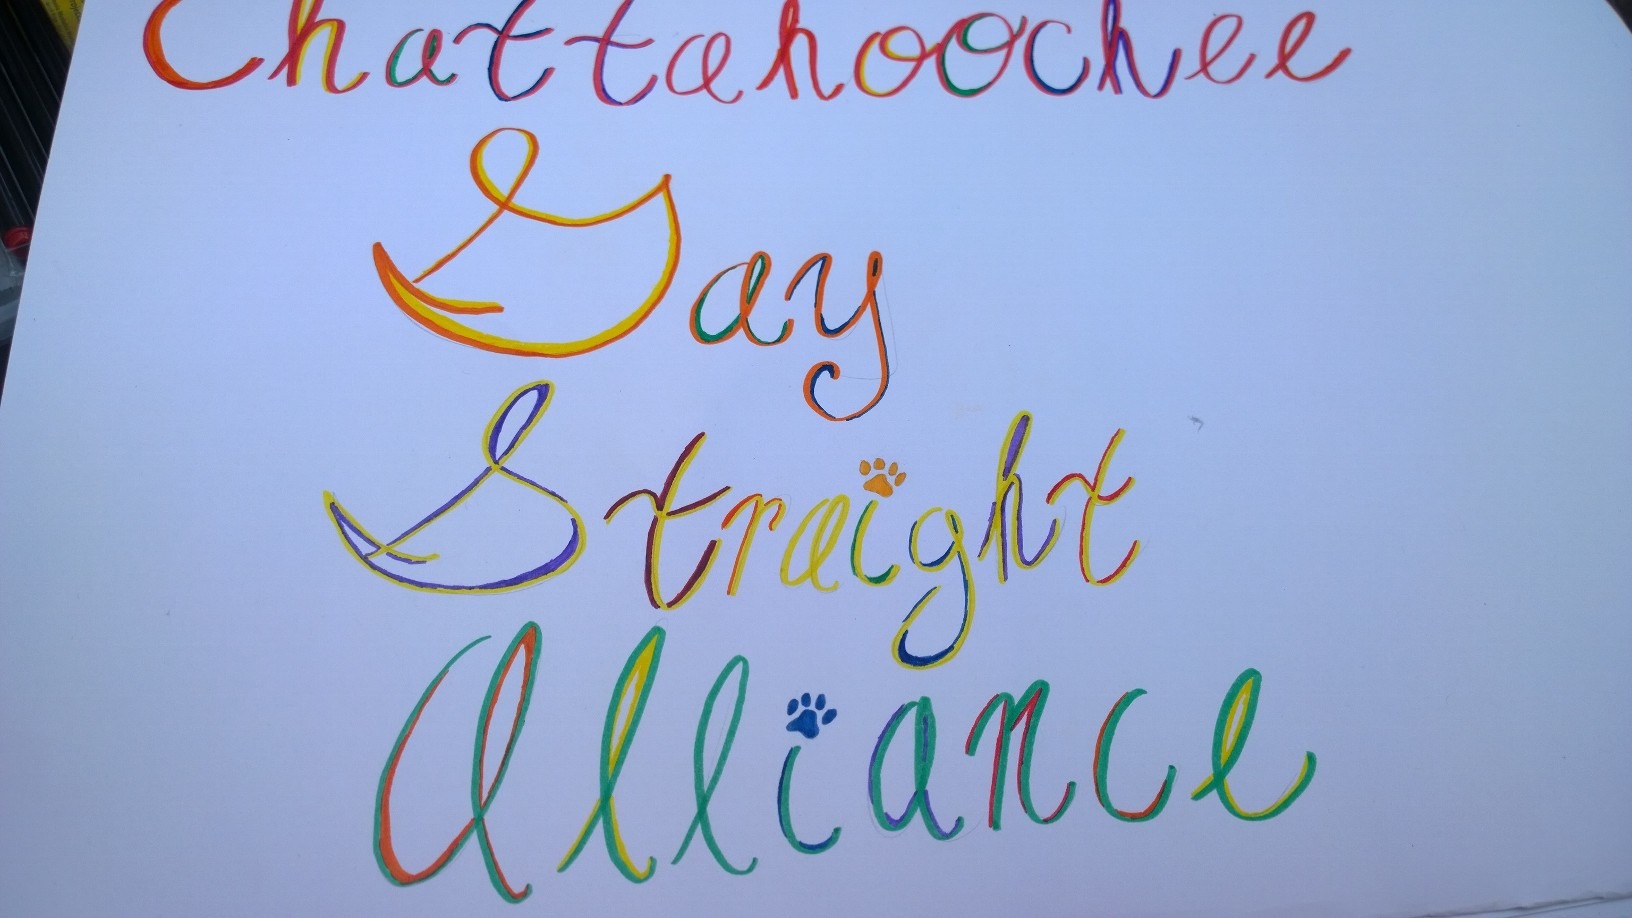 Chattahoochee
Gay
Straight
Alliance